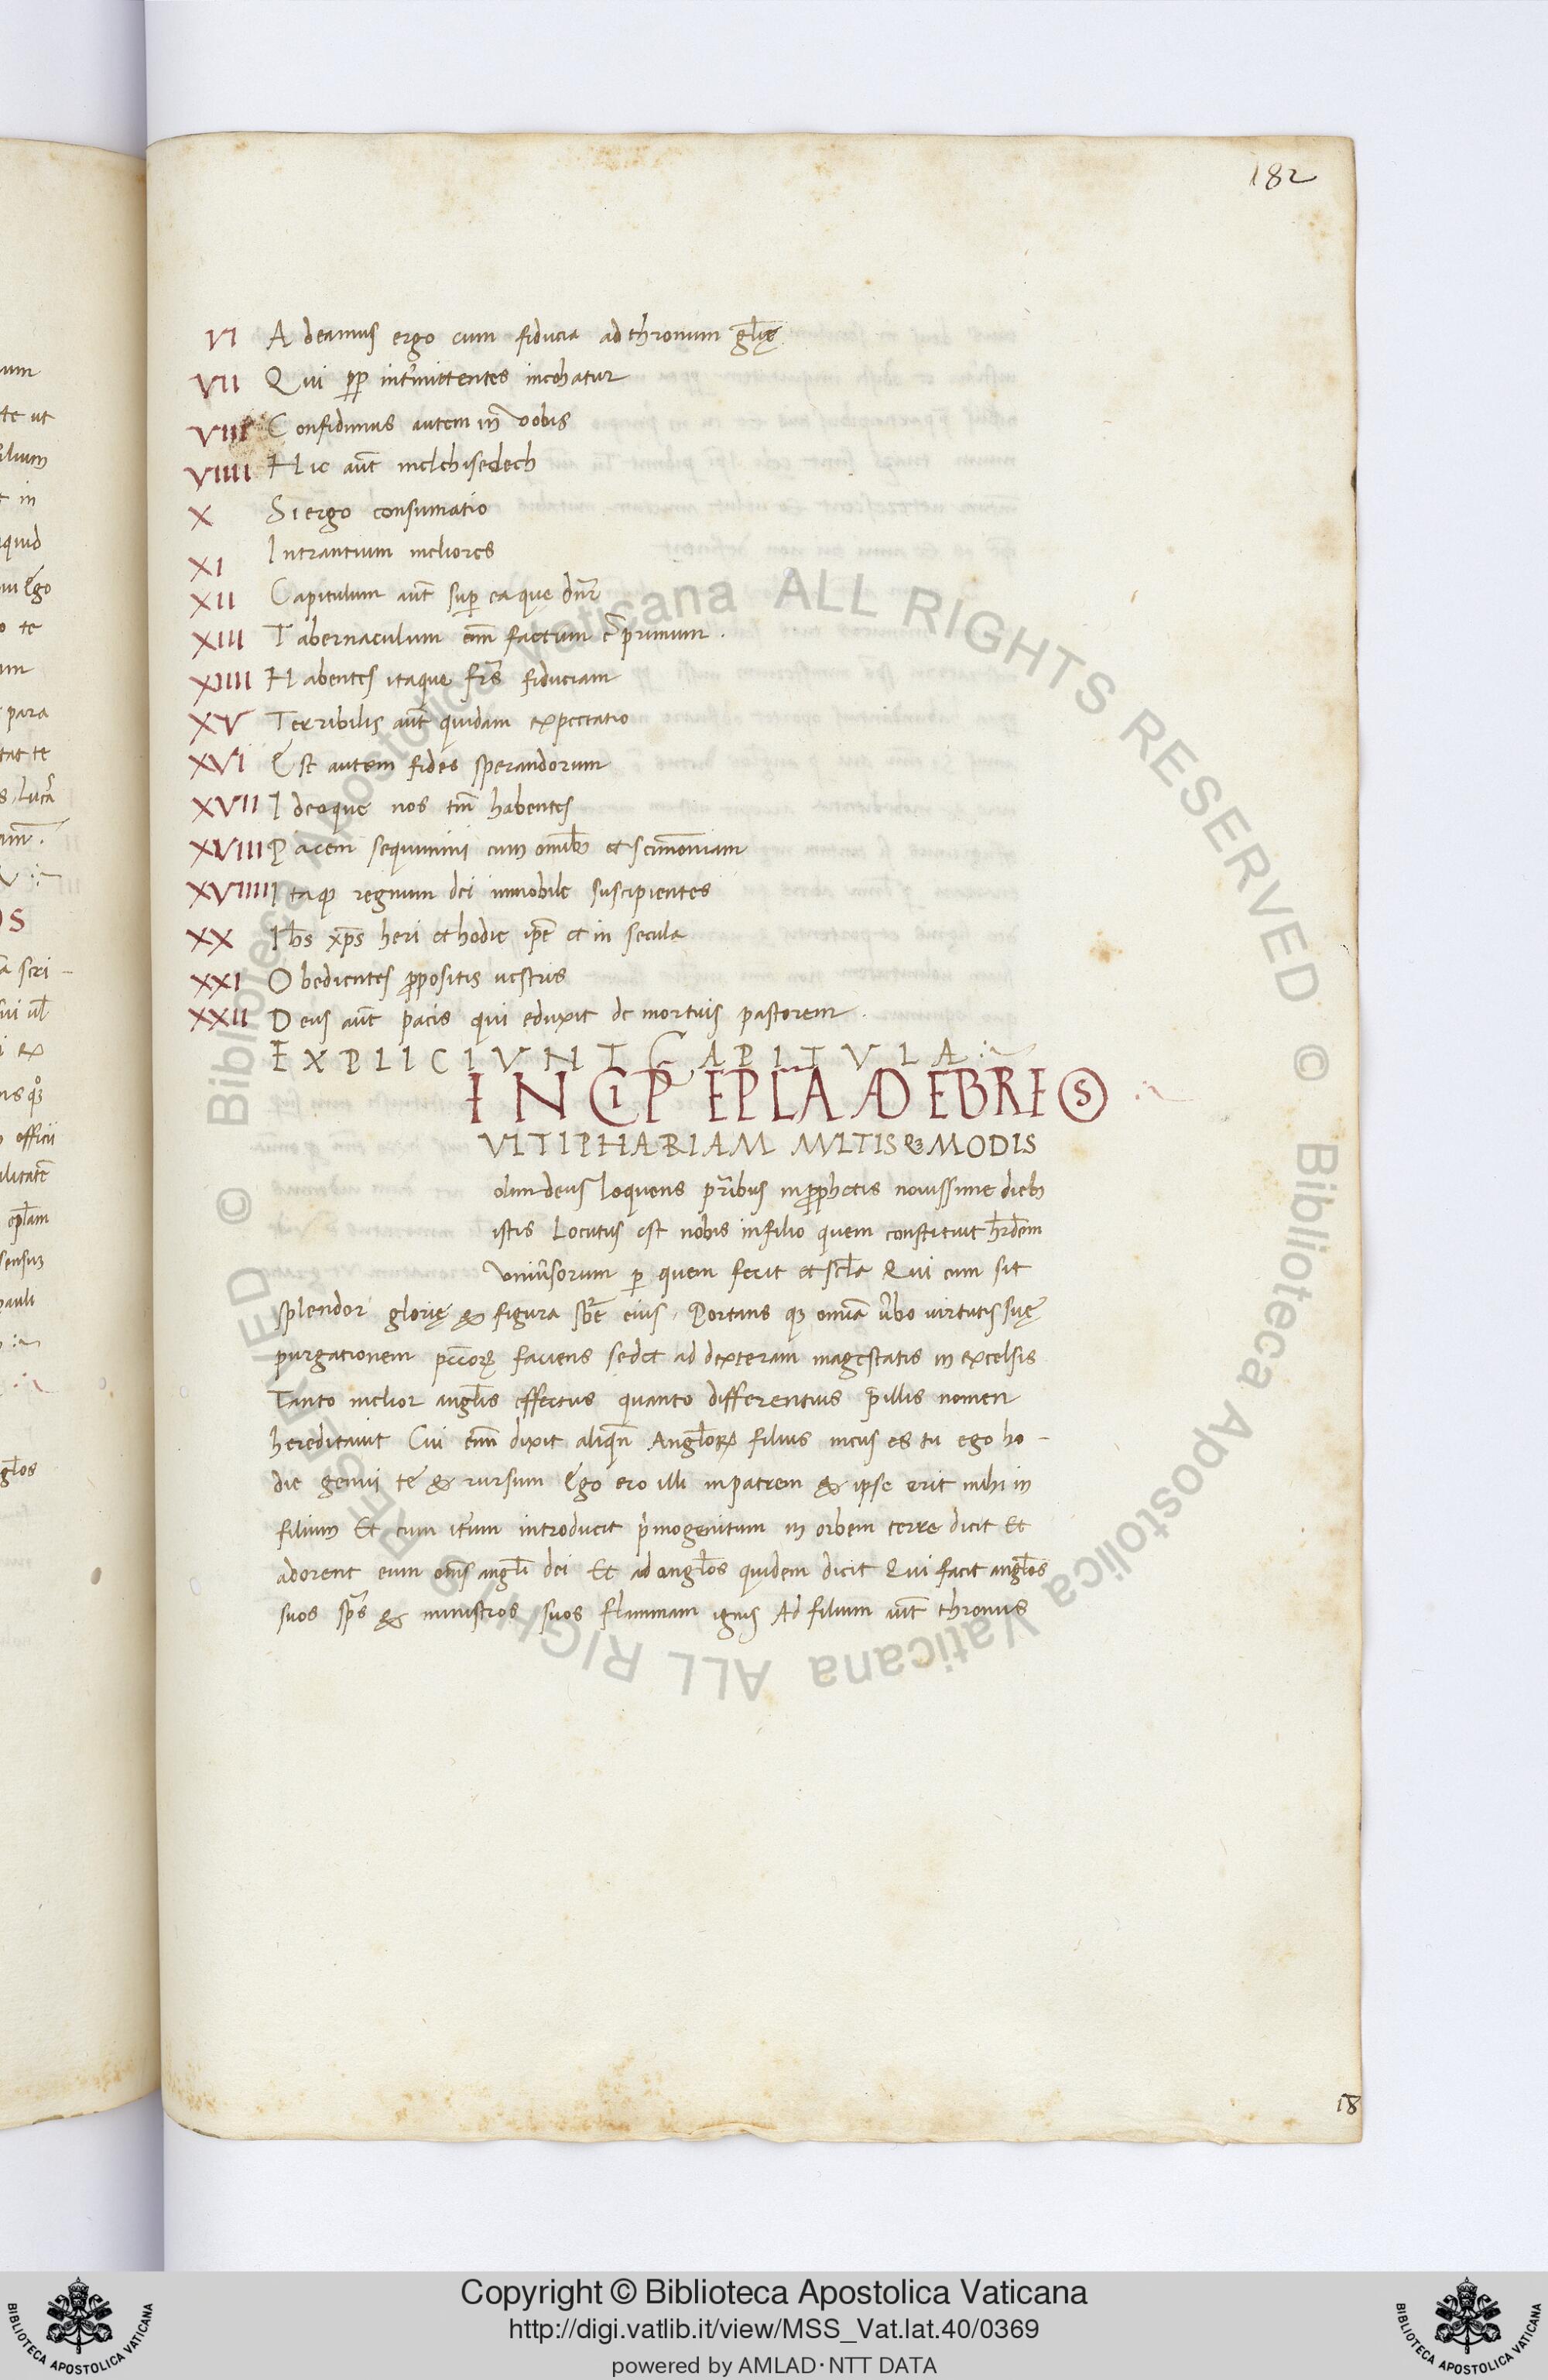 182
VI A deamus ergo cum fiducia ad thronum gl̅ię
VII Qui ꝓp̅ int̅mittentes incohatur
VIII Confidimus autem in̅ vobis
VIIII Hic aut̅ melchisedech
X Si ergo consumatio
XI Intrantium meliores
XII Capitulum aut̅ sup̱ ea que dn̅r
XIII Tabernaculum em̅ factum ē primum.
XIIII Habentes itaque fr̅s fiduciam
XV Terribilis aut̅ quidam expectatio
XVI Est autem fides sperandorum
XVII Ideoque nos tm̅ habentes
XVIII Pacem sequimini cum omib; et scimoniam
XVIIII Itaq; regnum dei immobile suscipientes
XX Ihs xp̅s heri et hodie ip̅e et in secula
XXI Obedientes p̱positis vestris
XXII Deus aut̅ pacis qui eduxit de mortuis pastorem.
EXPLICIVNT CAPITVLA
INCIP EPLA AD EBREOS
VLTIPHARIAM MVLTISQ; MODIS
olim deus loquens pr̅ibus in ꝓphetis novissime dieb;
istis Locutus est nobis in filio quem constituit hr̅dem
vniu̅sorum ꝑ quem fecit et sc̅la Qui cum sit
splendor glorię & figura sb̅e eius. Portans q; omia v̅bo virtutis suę
purgationem pcc̅oꝝ faciens sedet ad dexteram magestatis in excelsis
Tanto melior angl̅is effectus quanto differentius p̅ illis nomen
hereditavit Cui em̅ dixit aliqn̅ Angl̅oꝝ filius meus es tu ego ho-
die genui te & rursum Ego ero illi in patrem & ipse erit mihi in
filium Et cum it̅um introducit p̅mogenitum in orbem terre dicit Et
adorent eum om̅s angl̅i dei Et ad angl̅os quidem dicit Qui facit angl̅os
suos sp̅s & ministros suos flammam ignis Ad filium aut̅ thronus
18
© Biblioteca Apostolica Vaticana ALL RIGHTS RESERVED © Biblioteca Apostolica Vaticana ALL RIGHTS RESERVED
Copyright © Biblioteca Apostolica Vaticana
http://digi.vatlib.it/view/MSS_Vat.lat.40/0369
powered by AMLAD·NTT DATA
BIBLIOTECA APOSTOLICA VATICANA
BIBLIOTECA APOSTOLICA VATICANA